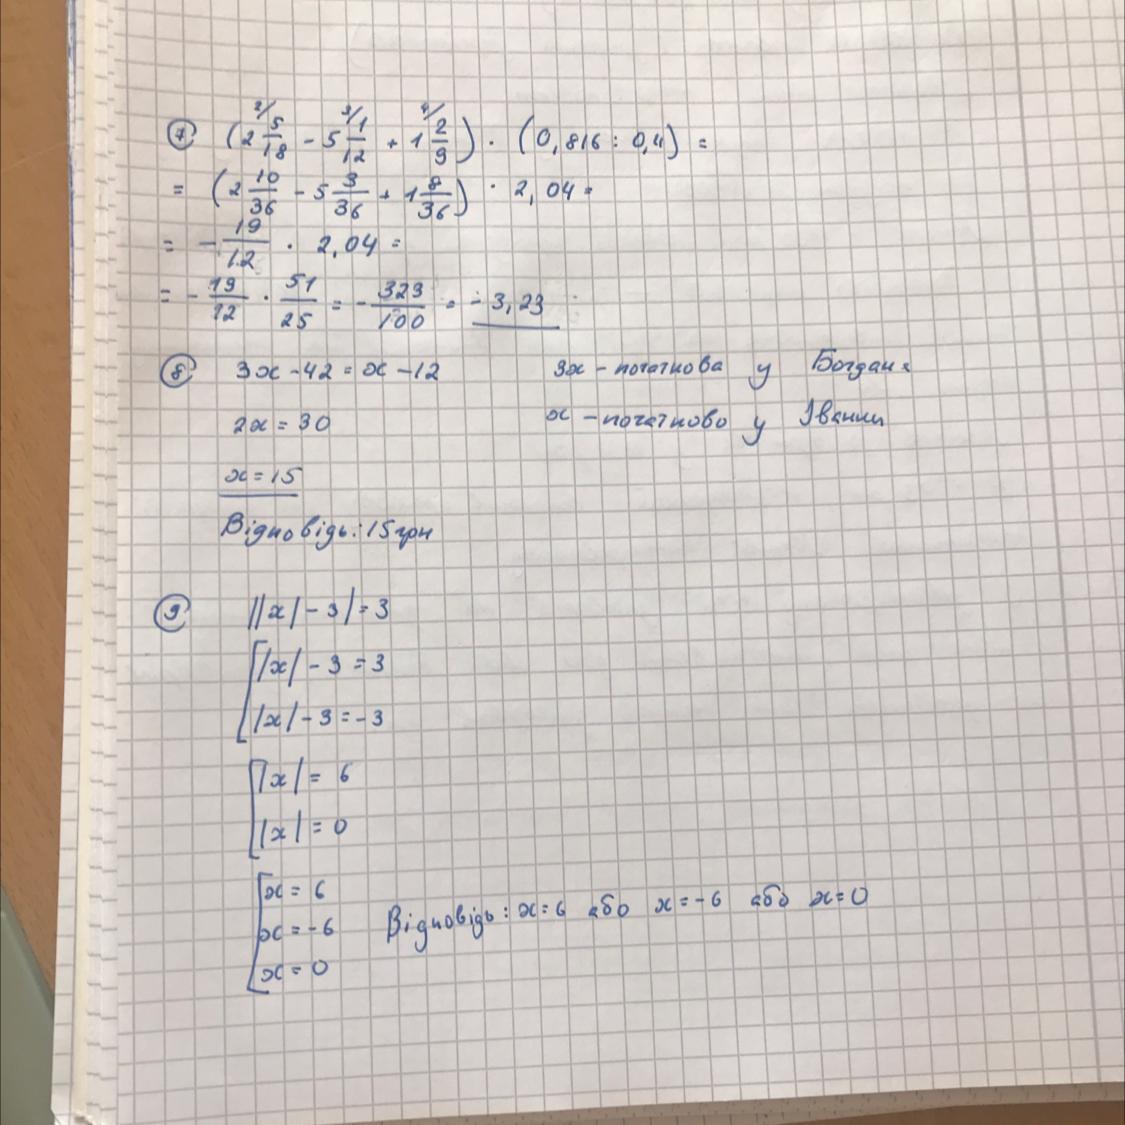 7 (2 5/18 - 5 1/12 + 1 2/9) · (0,816 : 0,4) =
= (2 10/36 - 5 3/36 + 1 8/36) · 2,04 =
= - 19/12 · 2,04 =
= - 19/12 · 51/25 = - 323/100 = - 3,23
8 3x - 42 = x - 12 3x - початкова у Богдана
2x = 30 x - початково у Іванки
x = 15
Відповідь: 15 грн
9 ||x| - 3| = 3
[|x| - 3 = 3
|x| - 3 = -3
[|x| = 6
|x| = 0
[x = 6
x = -6 Відповідь: x = 6 або x = -6 або x = 0
x = 0